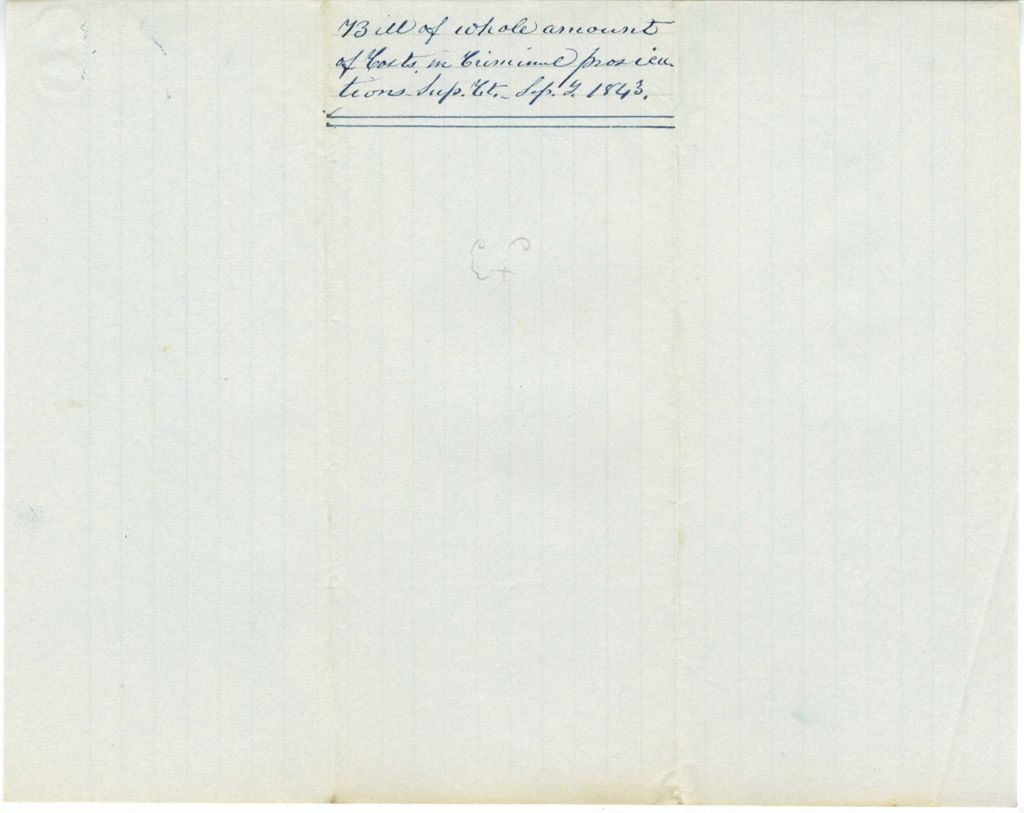 Bill of whole amount
of Costs in Criminal prosecu-
tions Sup. Ct. Sep. T. 1843.